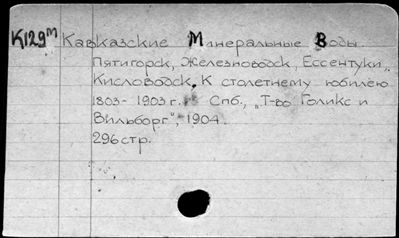 К129м Кавказские Минеральные Воды.
Пятигорск, Железноводск, Ессентуки,
Кисловодск. К столетнему юбилею
1803-1903 г.г. Спб., „Т-во Голике и
Вильборг", 1904.
296 стр.